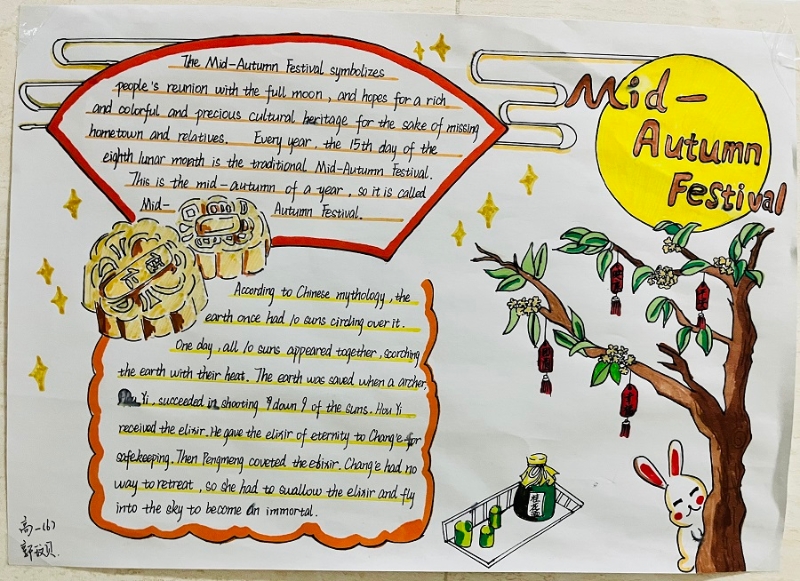 Mid-
Autumn
Festival
The Mid-Autumn Festival symbolizes
people's reunion with the full moon, and hopes for a rich
and colorful and precious cultural heritage for the sake of missing
hometown and relatives. Every year, the 15th day of the
eighth lunar month is the traditional Mid-Autumn Festival.
This is the mid-autumn of a year, so it is called
Mid- Autumn Festival.
According to Chinese mythology, the
earth once had 10 suns circling over it.
One day, all 10 suns appeared together, scorching
the earth with their heat. The earth was saved when a archer,
Yi, succeeded in shooting 9 down 9 of the suns. Hou Yi
received the elixir. He gave the elixir of eternity to Chang'e for
safekeeping. Then Pengmeng coveted the elixir. Chang'e had no
way to retreat, so she had to swallow the elixir and fly
into the sky to become an immortal.
桂花酒
高一(6)